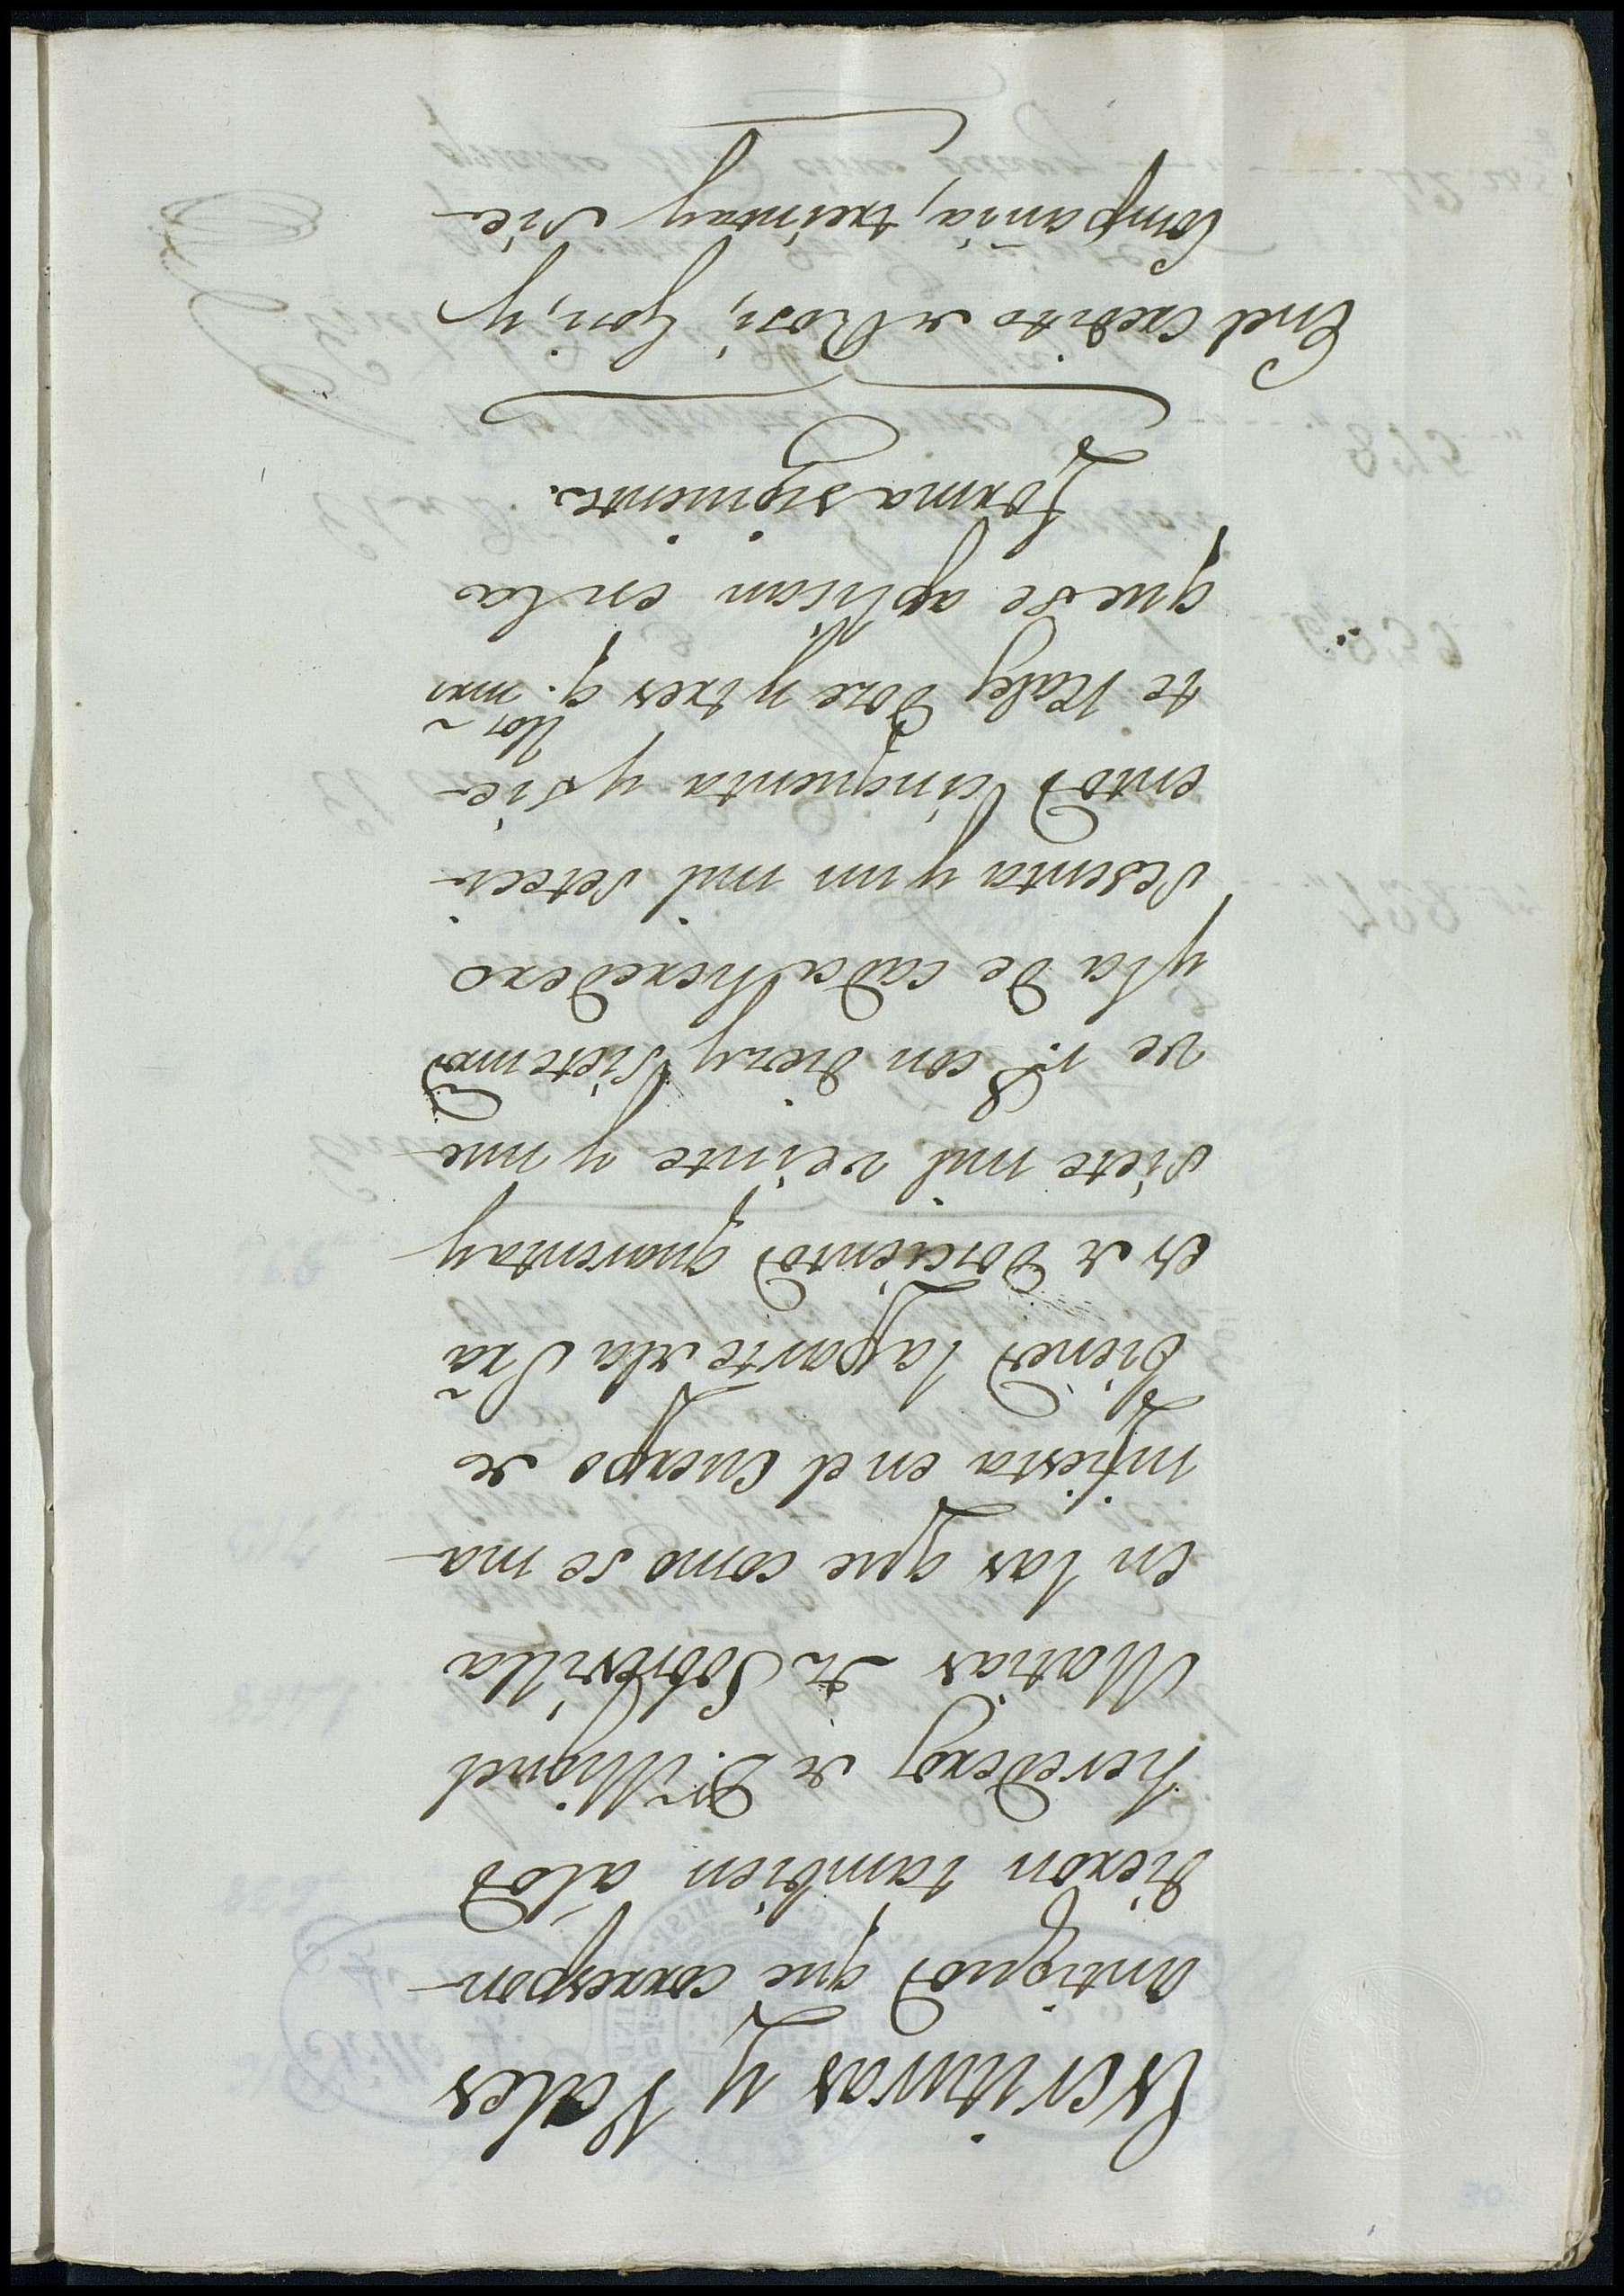 Escrituras y Vales
antiguos que correspon-
dieron tambien alos
herederos de Dn. Miguel
Matias de Sobrevilla
en las que como se ma-
nifiesta en el Cuerpo de
vienes la parte dela Sra
es de doscientos quarentay
siete mil veinte y nue-
ve rs. con diez y siete mrs
yla de cada heredero
sesenta y un mil seteci-
entos cinquenta y sie-
te Rales doze y tres q. mrs
Von
que se aplican en la
forma siguiente.
Enel credito de Rosi, Gori, y
Compañia, treintay sie-